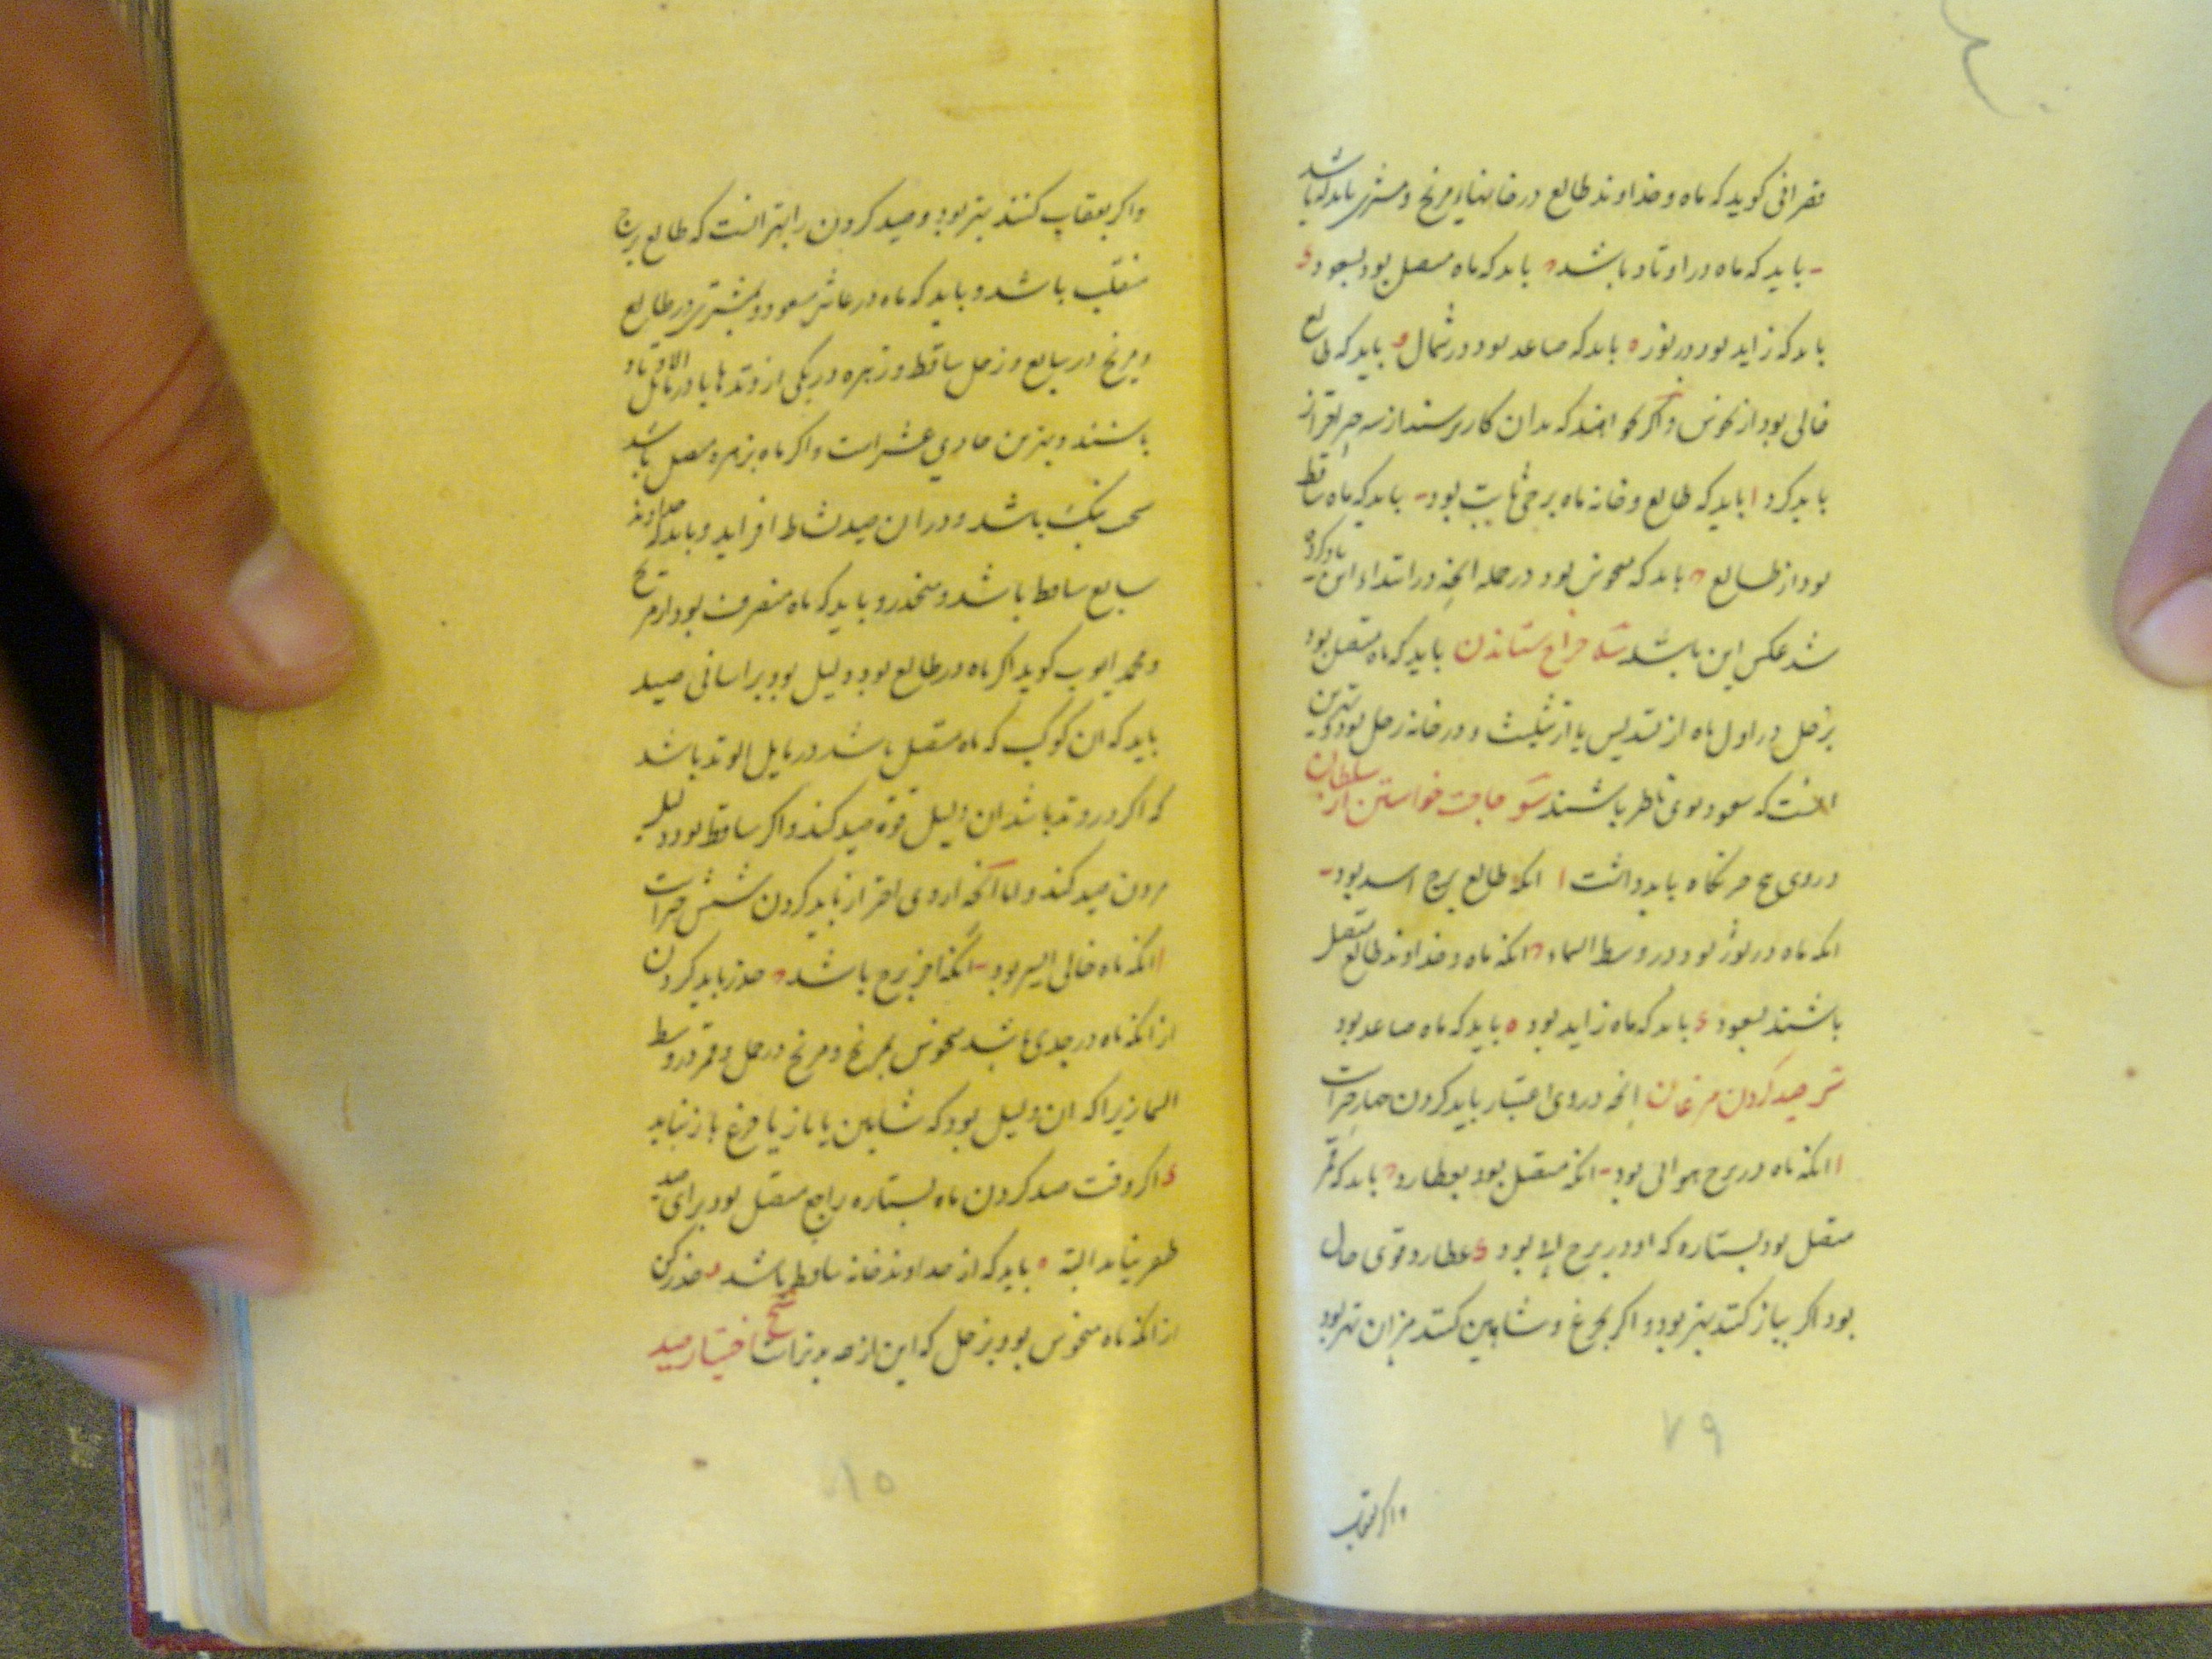 قصرانی کوید که ماه و خداوند طالع در خانهاء مریخ و مشتری باید که باشد
باید که ماه در اوتاد باشد باید که ماه متصل بود بسعود
باید که زاید بود در نور ه باید که صاعد بود در شمال و باید که طالع
خالی بود از نحوس و اکر خواهند که بدان کار برسند از سه چیز احتراز
باید کرد ا باید که طالع و خانه ماه برجی ثابت بود باید که ماه ساقط
بود از طالع باید که منحوس بود در جمله انچه در ابتداء این یاد کرده
شد عکس این باشد خراج ستاندن باید که ماه متصل بود
بزحل در اول ماه از تسدیس یا از تثلیث و در خانه زحل بود و بهترین
انست که سعود بوی ناظر باشند حاجت خواستن از سلطان
در وی پنج چیز نکاه باید داشت ا انکه طالع برج اسد بود
انکه ماه در ثور بود و در وسط السماء انکه ماه و خداوند طالع متصل
باشند بسعود باید که ماه زاید بود ه باید که ماه صاعد بود
صید کردن مرغان انچه در وی اعتبار باید کردن چهار چیز است
ا انکه ماه در برج هوائی بود انکه متصل بود بعطارد باید که قمر
متصل بود بستاره که او در برج بود عطارد قوی حال
بود اکر بباز کنند بهتر بود و اکر بچرغ و شاهین کنند میزان بهتر بود
۷۹
واکر بعقاب
واکر بعقاب کنند بهتر بود و صید کردن را بهتر انست که طالع برج
منقلب باشد و باید که ماه در عاشر مسعود و مشتری در طالع
و مریخ در سابع و زحل ساقط و زهره در یکی از وتدها یا در مائل الاوتاد
باشند و بهترین حادی عشر است و اکر ماه بزهره متصل باشد
سخت نیک باشد و در ان صید نشاط افزاید و باید که خداوند
سابع ساقط باشد و منحدر و باید که ماه منصرف بود از مریخ
و محمد ایوب کوید اکر ماه در طالع بود دلیل بود بر اسانی صید
باید که ان کوکب که ماه متصل باشد در مایل الوتد باشد
که اکر در وتد باشد ان دلیل قوة صید کند و اکر ساقط بود دلیل
صید کند و اما انچه از وی احتراز باید کردن شش چیز است
ا انکه ماه خالی السیر بود انکه اخر برج باشد حذر باید کردن
از انکه ماه در جدی باشد منحوس بمریخ و مریخ در حمل و قمر در وسط
السما زیرا که ان دلیل بود که شاهین یا باز یا چرغ باز نیاید
اکر وقت صید کردن ماه بستاره راجع متصل بود برای صید
ظفر نیابد البته ه باید که از خداوند خانه ساقط باشد و حذر کن
از انکه ماه منحوس بود بزحل که این از همه بدتر است اختیار صید